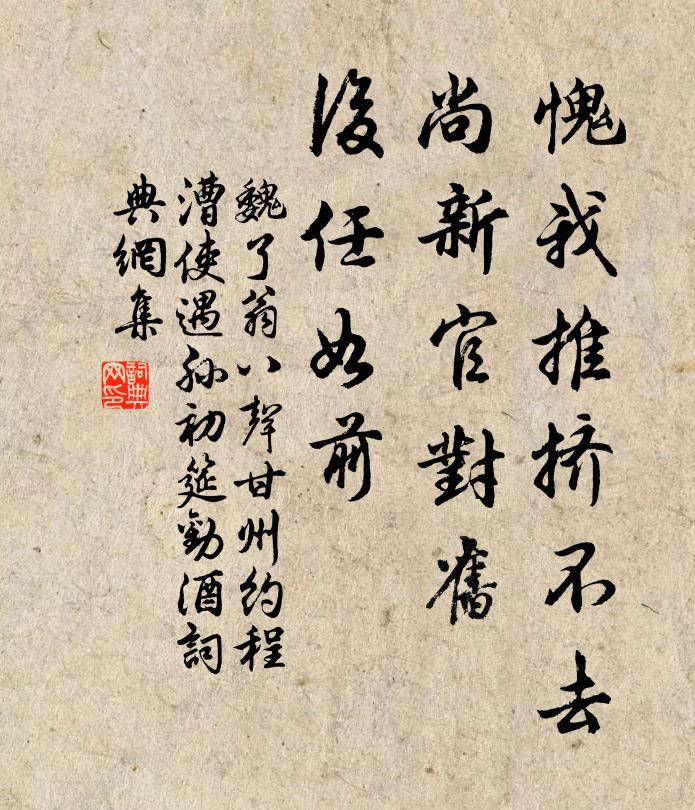 愧我推挤不去
尚新官對舊
後任如前
魏了翁八聲甘州約程
漕使遇孙初筵勸酒詞
典網集
詞典網印